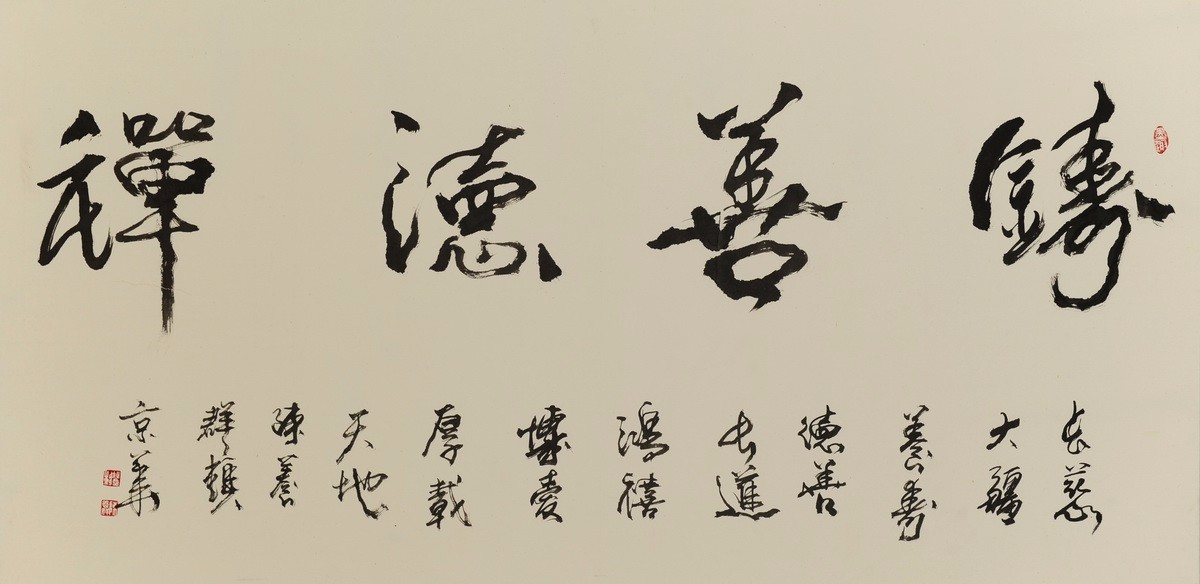 鑄善德禪
長慈
大疆
養壽
德善
長進
鴻禧
博愛
厚載
天地
陳善
群書
京華